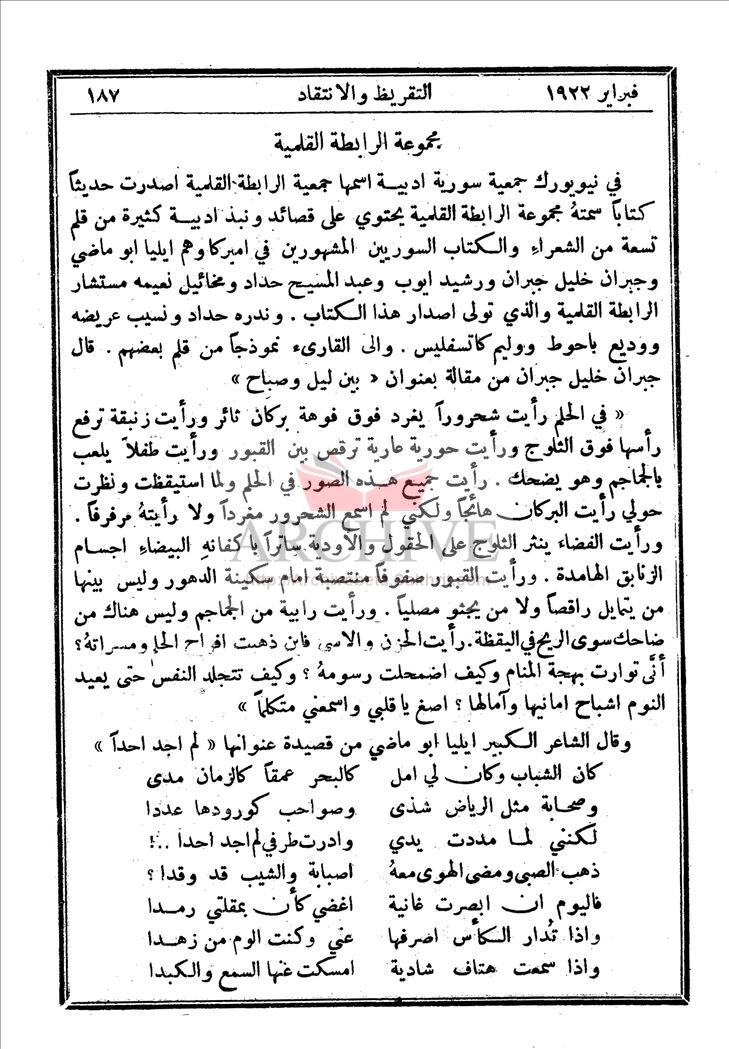 فبراير ١٩٢٢ التقريظ والانتقاد ١٨٧
مجموعة الرابطة القلمية
في نيويورك جمعية سورية ادبية اسمها جمعية الرابطة القلمية اصدرت حديثاً
كتاباً سمتهُ مجموعة الرابطة القلمية يحتوي على قصائد ونبذ ادبية كثيرة من قلم
تسعة من الشعراءِ والكتاب السوريين المشهورين في اميركا وهم ايليا ابو ماضي
وجبران خليل جبران ورشيد ايوب وعبد المسيح حداد ومخائيل نعيمه مستشار
الرابطة القلمية والذي تولى اصدار هذا الكتاب . وندره حداد ونسيب عريضه
ووديع باحوط ووليم كاتسفليس . والى القارىء نموذجاً من قلم بعضهم . قال
جبران خليل جبران من مقالة بعنوان « بين ليل وصباح »
« في الحلم رأيت شحروراً يغرد فوق فوهة بركان ثائر ورأيت زنبقة ترفع
رأسها فوق الثلوج ورأيت حورية عارية ترقص بين القبور ورأيت طفلاً يلعب
بالجماجم وهو يضحك . رأيت جميع هذه الصور في الحلم ولما استيقظت ونظرت
حولي رأيت البركان هائجاً ولكني لم اسمع الشحرور مغرداً ولا رأيتهُ مرفرفاً .
ورأيت الفضاء ينثر الثلوج على الحقول والاودية ساتراً باكفانهِ البيضاءِ اجسام
الزنابق الهامدة . ورأيت القبور صفوفاً منتصبة امام سكينة الدهور وليس بينها
من يتمايل راقصاً ولا من يجثو مصلياً . ورأيت رابية من الجماجم وليس هناك من
ضاحك سوى الريح في اليقظة . رأيت الحزن والاسى فاين ذهبت افراح الحلم ومسراتهُ ؟
أنَّى توارت بهجة المنام وكيف اضمحلت رسومهُ ؟ وكيف تتجلد النفس حتى يعيد
النوم اشباح امانيها وآمالها ؟ اصغ يا قلبي واسمعني متكلماً »
وقال الشاعر الكبير ايليا ابو ماضي من قصيدة عنوانها « لم اجد احداً »
كان الشباب وكان لي امل كالبحر عمقاً كالزمان مدى
وصحابة مثل الرياض شذى وصواحب كورودها عددا
لكنني لما مددت يدي وادرت طرفي لم اجد احدا ..!
ذهب الصبى ومضى الهوى معهُ اصبابة والشيب قد وقدا ؟
فاليوم ان ابصرت غانية اغضي كأن بمقلتي رمدا
واذا تُدار الكأس اصرفها عني وكنت الوم من زهدا
واذا سمعت هتاف شادية امسكت عنها السمع والكبدا
ARCHIVE